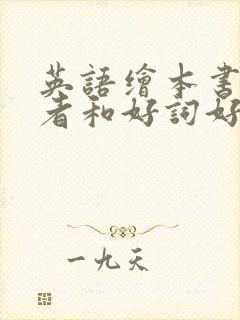 英語繪本書
者和好詞好
一九天